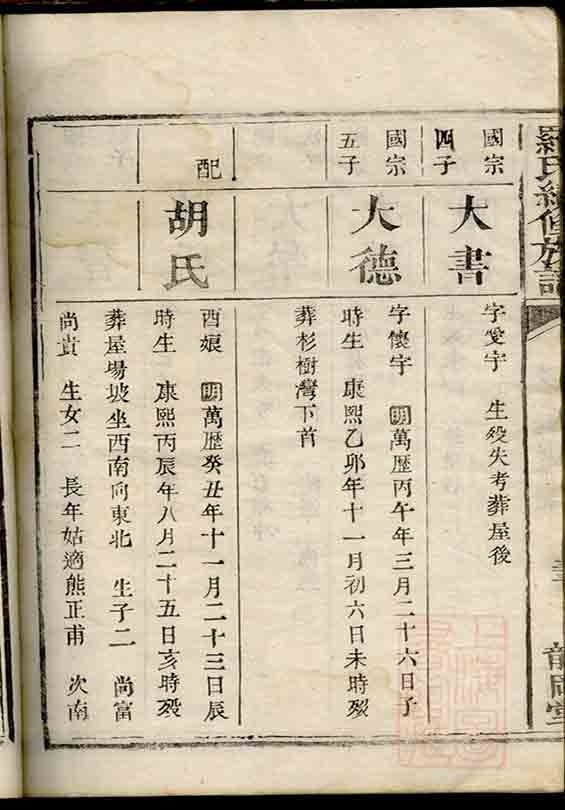 羅氏續修族譜
國宗
四子
大書
字愛宇 生歿失考葬屋後
國宗
五子
大德
字懷宇 明萬歷丙午年三月二十六日子
時生 康熙乙卯年十一月初六日未時歿
葬杉樹灣下首
配
胡氏
酉娘 明萬歷癸丑年十一月二十三日辰
時生 康熙丙辰年八月二十五日亥時歿
葬屋場坡坐西南向東北 生子二 尚富
尚貴 生女二 長年姑適熊正甫 次南